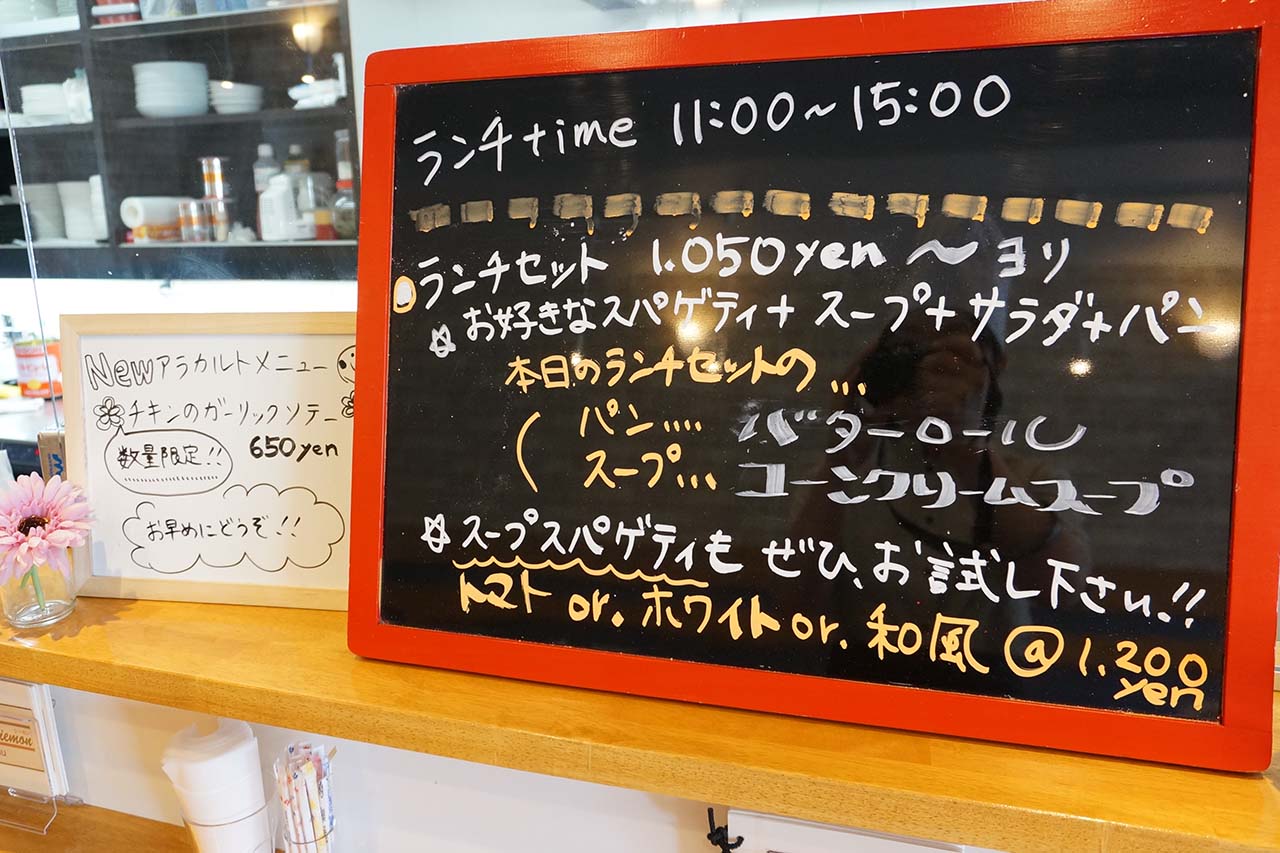 ランチtime 11:00~15:00
ランチセット 1.050yen ~ヨリ
☆お好きなスパゲティ+スープ+サラダ+パン
本日のランチセットの...
パン.... バターロール
スープ... コーンクリームスープ
☆スープスパゲティも ぜひ、お試し下さい!!
トマト or. ホワイト or. 和風 @1.200
yen
Newアラカルトメニュー
チキンのガーリックソテー
数量限定!! 650yen
お早めにどうぞ!!